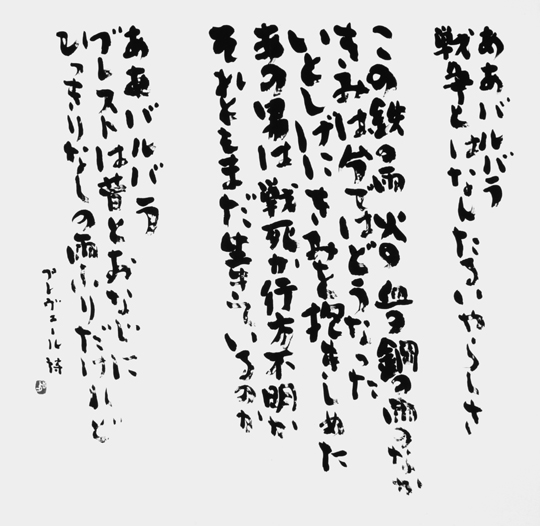 ああバルバラ
戦争とはなんたるいやらしさ
この鉄の雨 火の 血の 鋼の雨のなか
きみは今ではどうなった
いとしげにきみを抱きしめた
あの男は 戦死か行方不明か
それともまだ生きているのか
ああバルバラ
ブレストは昔とおなじに
ひっきりなしの雨ふりだけれど
プレヴェール詩